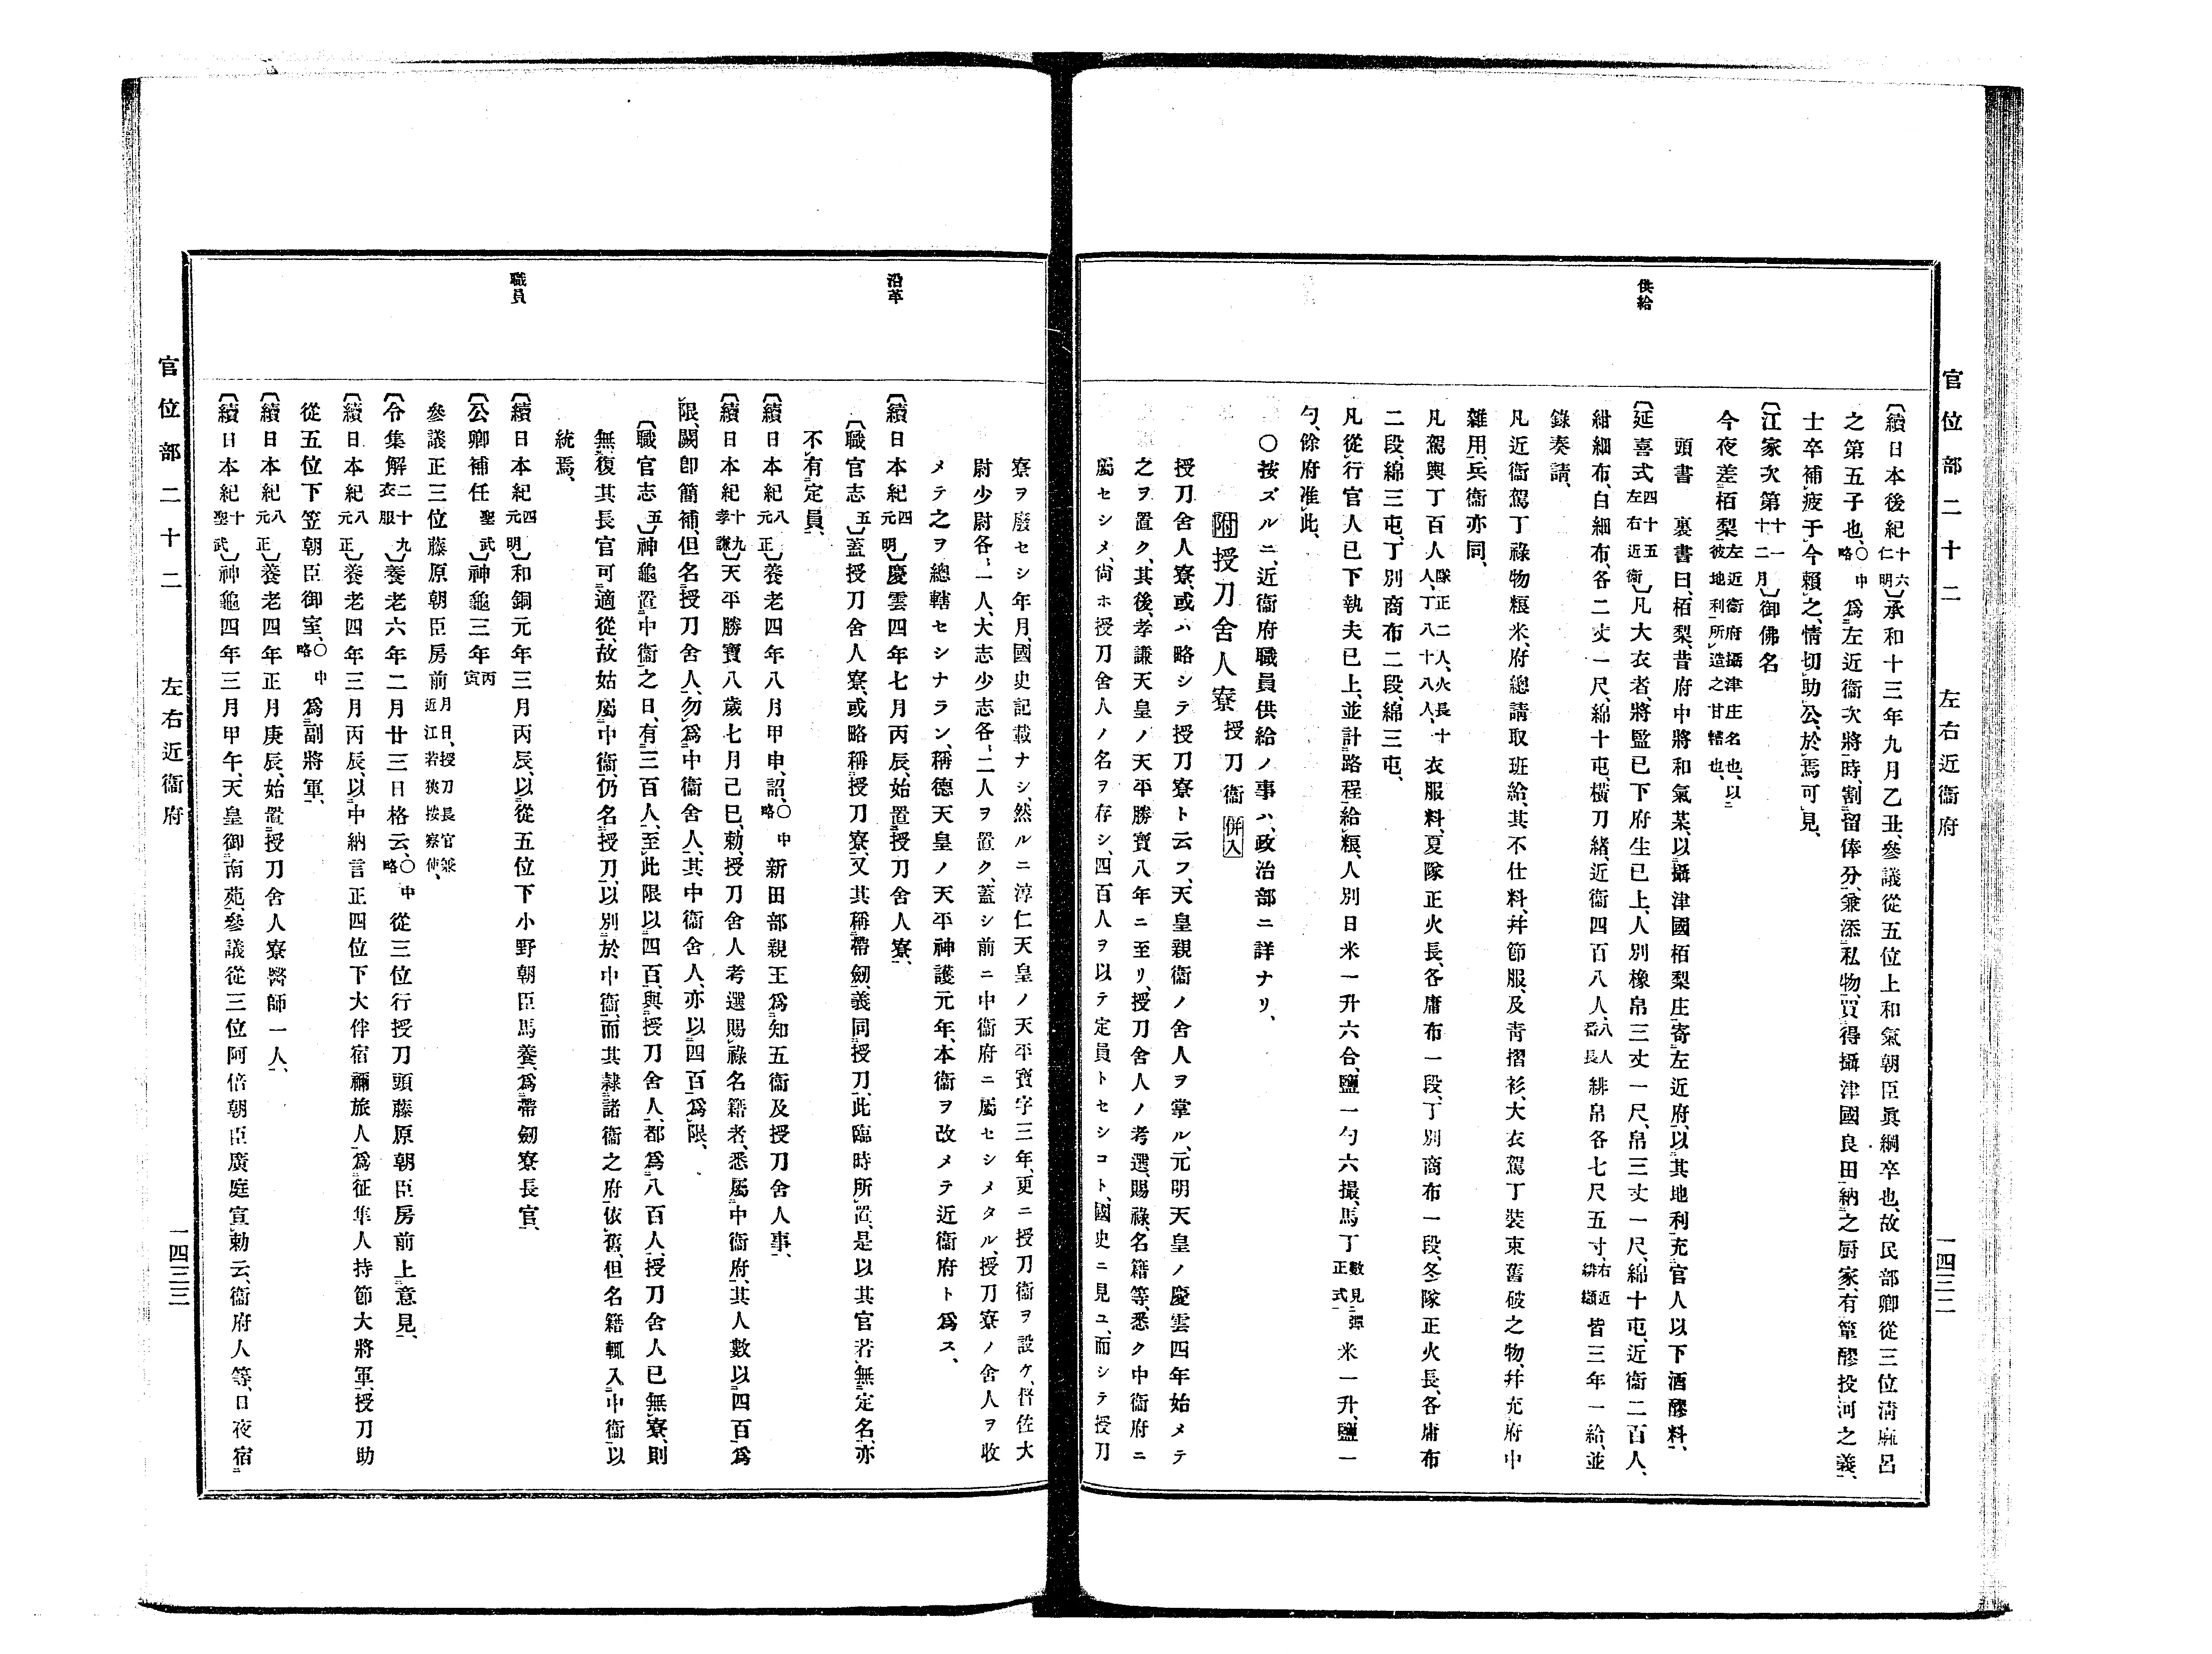 官位部二十二　左右近衞府　一四三二
供給
〔續日本後紀十六仁明〕承和十三年九月乙丑、參議從五位上和氣朝臣眞綱卒也、故民部卿從三位淸麻呂
之第五子也、○中略爲左近衞次將時、割留俸分、兼添私物、買得攝津國良田、納之厨家、有簞醪投河之義、
士卒補疲于今賴之、情切助公、於焉可見、
〔江家次第十一十二月〕御佛名
今夜差栢梨左近衞府攝津庄名也、以彼地利所造之甘糟也、
頭書　裏書曰、栢梨、昔府中將和氣某、以攝津國栢梨庄、寄左近府、以其地利、充官人以下酒醪料、
〔延喜式四十五左右近衞〕凡大衣者、將監已下府生已上、人別橡帛三丈一尺、帛三丈一尺、綿十屯、近衞二百人、
紺細布、白細布、各二丈一尺、綿十屯、橫刀緖、近衞四百八人、八人番長緋帛各七尺五寸、右近緋纈皆三年一給、並
錄奏請、
凡近衞駕丁祿物粮米、府總請取班給、其不仕料、幷節服、及靑摺衫、大衣駕丁裝束舊破之物、幷充府中
雜用、兵衞亦同、
凡駕輿丁百人、隊正二人、火長十人、丁八十八人、衣服料、夏隊正火長、各庸布一段、丁別商布一段、冬隊正火長、各庸布
二段、綿三屯、丁別商布二段、綿三屯、
凡從行官人已下執夫已上、並計路程給粮、人別日米一升六合、鹽一勺六撮、馬丁數見彈正式米一升、鹽一
勺、餘府准此、
○按ズルニ、近衞府職員供給ノ事ハ、政治部ニ詳ナリ、
附授刀舍人寮　授刀衞併入
授刀舍人寮、或ハ略シテ授刀寮ト云フ、天皇親衞ノ舍人ヲ掌ル、元明天皇ノ慶雲四年始メテ
之ヲ置ク、其後、孝謙天皇ノ天平勝寶八年ニ至リ、授刀舍人ノ考選、賜祿、名籍等、悉ク中衞府ニ
屬セシメ、尙ホ授刀舍人ノ名ヲ存シ、四百人ヲ以テ定員トセシコト、國史ニ見ユ、而シテ授刀
寮ヲ廢セシ年月、國史記載ナシ、然ルニ淳仁天皇ノ天平寶字三年、更ニ授刀衞ヲ設ケ、督佐大
尉少尉各〻一人、大志少志各〻二人ヲ置ク、蓋シ前ニ中衞府ニ屬セシメタル、授刀寮ノ舍人ヲ收
メテ之ヲ總轄セシナラン、稱德天皇ノ天平神護元年、本衞ヲ改メテ近衞府ト爲ス、
沿革
〔續日本紀四元明〕慶雲四年七月丙辰、始置授刀舍人寮、
〔職官志五〕蓋授刀舍人寮、或略稱授刀寮、又其稱帶劒、義同授刀、此臨時所置、是以其官若無定名、亦
不有定員、
〔續日本紀八元正〕養老四年八月甲申、詔、○中略新田部親王爲知五衞及授刀舍人事、
〔續日本紀十九孝謙〕天平勝寶八歲七月己巳、勅、授刀舍人考選賜祿名籍者、悉屬中衞府、其人數以四百爲
限、闕卽簡補、但名授刀舍人、勿爲中衞舍人、其中衞舍人、亦以四百爲限、
〔職官志五〕神龜置中衞之日、有三百人、至此限以四百、與授刀舍人、都爲八百人、授刀舍人已無寮、則
無復其長官可適從、故姑屬中衞、仍名授刀、以別於中衞、而其隷諸衞之府依舊、但名籍輒入中衞、以
統焉、
職員
〔續日本紀四元明〕和銅元年三月丙辰、以從五位下小野朝臣馬養、爲帶劒寮長官、
〔公卿補任聖武〕神龜三年丙寅
參議正三位藤原朝臣房前月日、授刀長官兼近江若狹按察使、
〔令集解二十九衣服〕養老六年二月廿三日格云、○中略從三位行授刀頭藤原朝臣房前上意見、
〔續日本紀八元正〕養老四年三月丙辰、以中納言正四位下大伴宿禰旅人、爲征隼人持節大將軍、授刀助
從五位下笠朝臣御室、○中略爲副將軍、
〔續日本紀八元正〕養老四年正月庚辰、始置授刀舍人寮醫師一人、
〔續日本紀十聖武〕神龜四年三月甲午、天皇御南苑、參議從三位阿倍朝臣廣庭宣勅云、衞府人等、日夜宿
官位部二十二　左右近衞府　一四三三